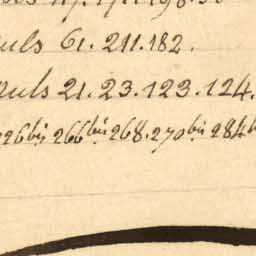 uls 61. 211. 182.
uls 21. 23. 123. 124.
226 bis 266 bis 268. 270 bis 284